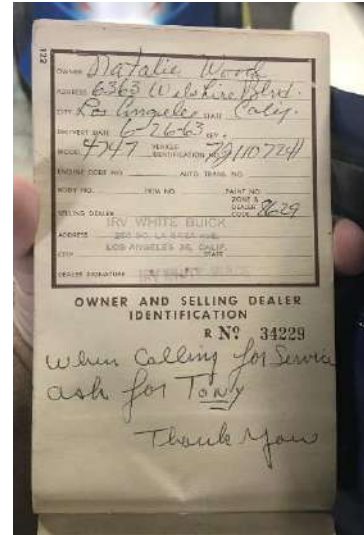 122
OWNER Natalie Wood
ADDRESS 6363 Wilshire Blvd.
CITY Los Angeles STATE Calif.
DELIVERY DATE 6-26-63 KEY #
MODEL 4747 VEHICLE IDENTIFICATION NO.
ENGINE CODE NO. AUTO TRANS. NO.
BODY NO. TRIM NO. PAINT NO.
ZONE &
SELLING DEALER DEALER CODE 26-29
IRV WHITE BUICK
ADDRESS SO. LA BREA AVE.
LOS ANGELES 36, CALIF.
CITY STATE
DEALER SIGNATURE IRV WHITE BUICK
OWNER AND SELLING DEALER
IDENTIFICATION
R Nº 34229
When Calling for Service
ask for Tony
Thank You